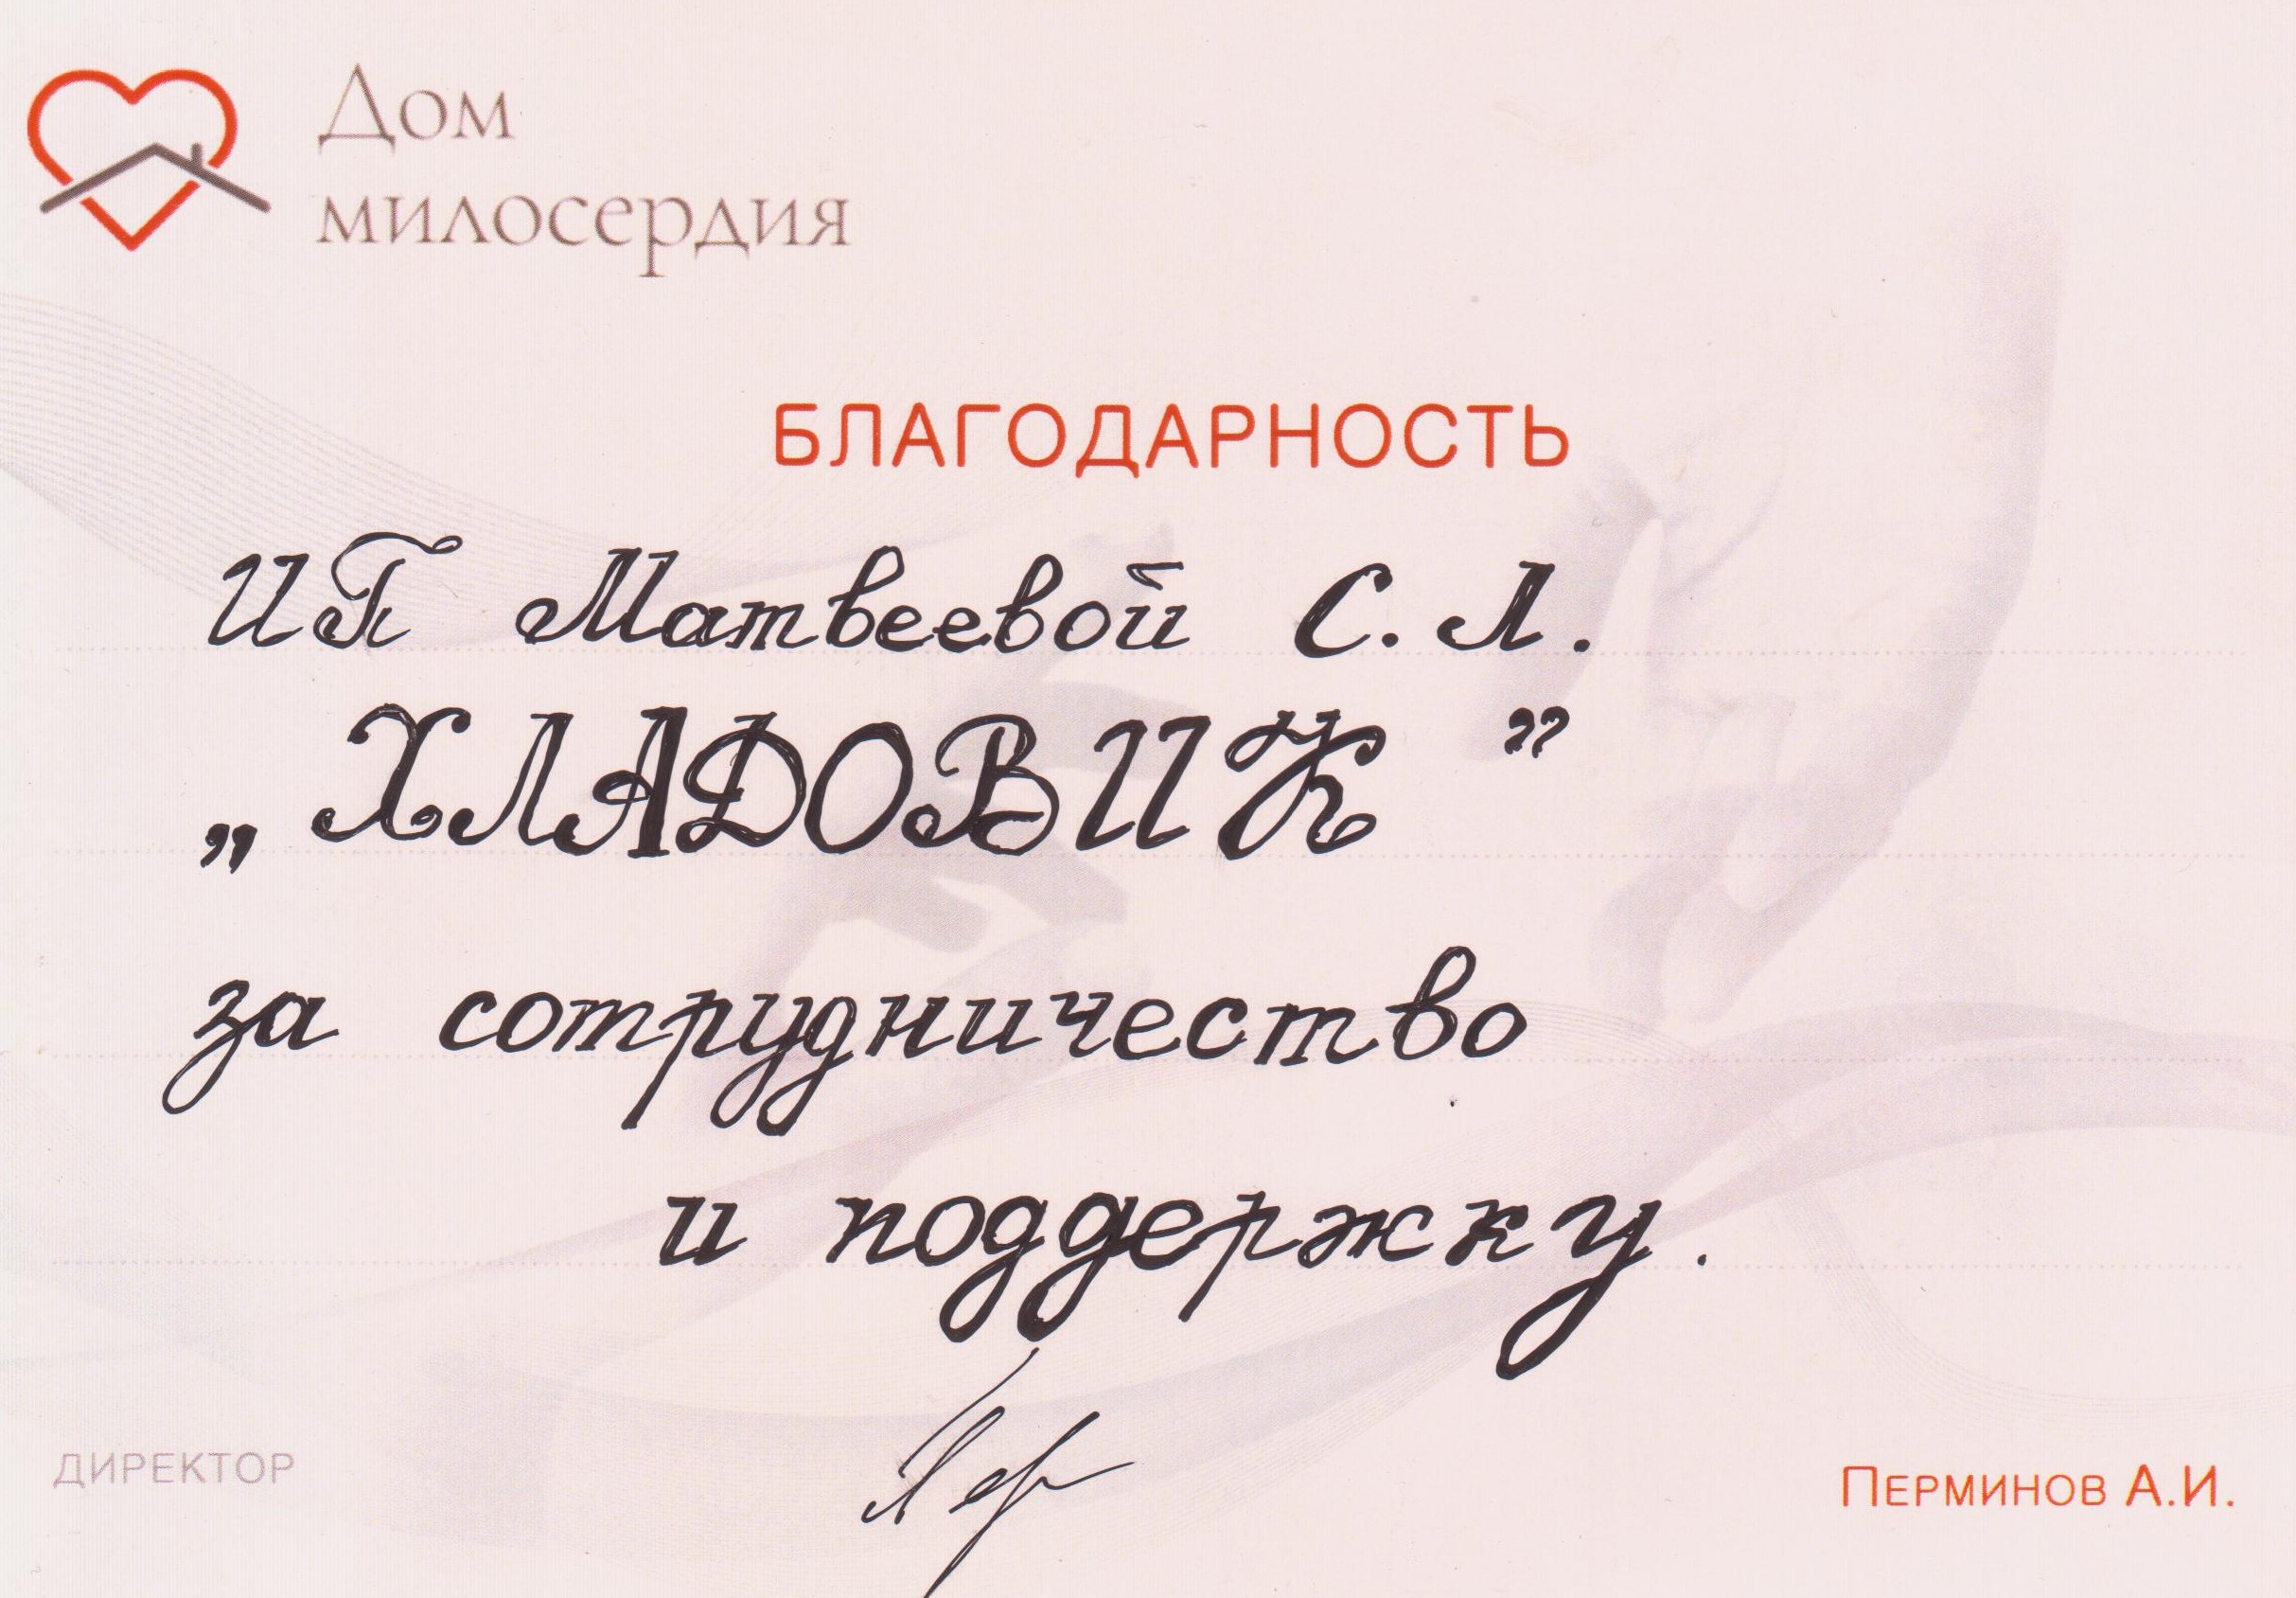 Дом
милосердия
БЛАГОДАРНОСТЬ
ИП Матвеевой С. Л.
„ХЛАДОВИК”
за сотрудничество
и поддержку.
ДИРЕКТОР
ПЕРМИНОВ А.И.